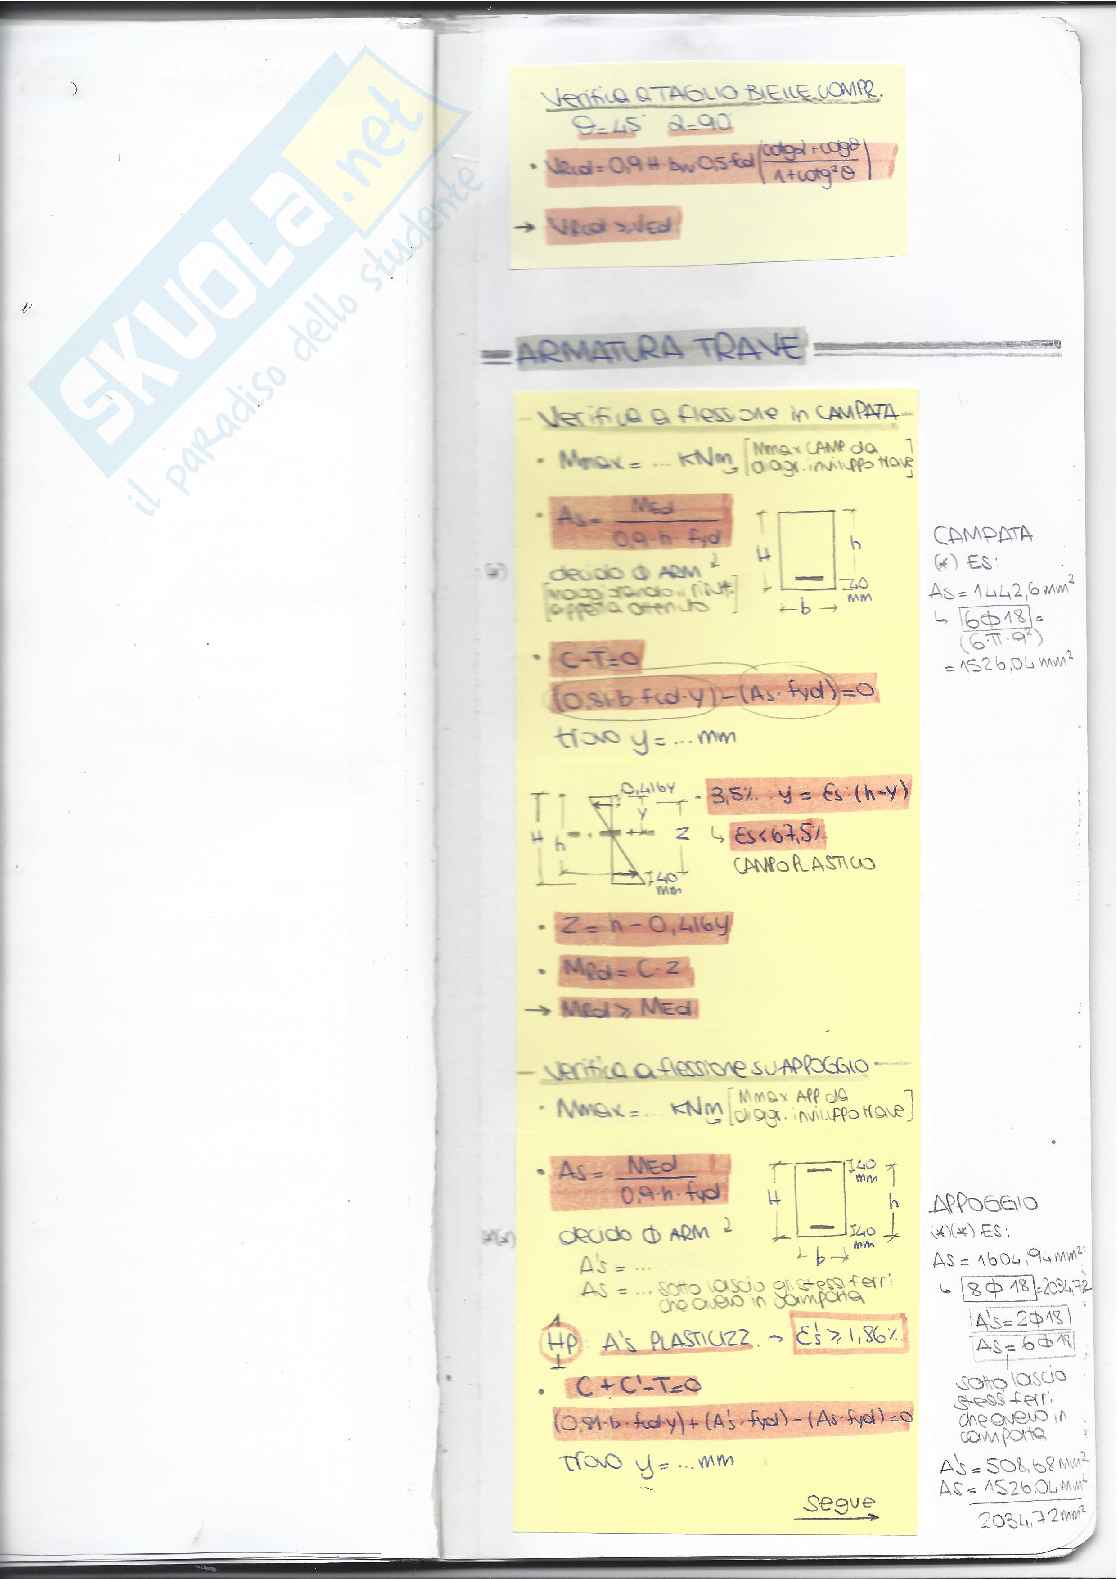 SKUOLA.net
il paradiso dello studente
Verifica a TAGLIO BIELLE COMPR.
θ=45 α=90
• VRcd=0,9 H · bw 0,5 fcd (cotgα+cotgθ / 1+cotg²θ)
→ VRcd ≥ VEd
ARMATURA TRAVE
- Verifica a flessione in CAMPATA -
• Mmax = ... KNm [Mmax CAMP da
diagr. inviluppo trave]
• As = MEd / 0,9·h·fyd
H
h
I40
mm
b
(*) decido Φ ARM ²
[maggiorando il risult.
appena ottenuto]
CAMPATA
(*) ES:
As = 1442,6 mm²
↳ 6Φ18 =
(6·π·9²)
= 1526,04 mm²
• C-T=0
(0,81·b·fcd·y)-(As·fyd)=0
trovo y = ... mm
0,416y
H
h
y
Z
I40
mm
• 3,5‰ · y = Es·(h-y)
↳ Es<67,5‰
CAMPO PLASTICO
• Z = h - 0,416y
• MRd = C·Z
→ MRd ≥ MEd
- Verifica a flessione su APPOGGIO -
• Mmax = ... KNm [Mmax APP da
diagr. inviluppo trave]
• As = MEd / 0,9·h·fyd
I40
mm
H
h
I40
mm
b
(*)(*) decido Φ ARM ²
A's = ...
As = ... sotto lascio gli stessi ferri
che avevo in campata
HP A's PLASTICIZZ. → ε's ≥ 1,86‰
• C+C'-T=0
(0,81·b·fcd·y)+(A's·fyd)-(As·fyd)=0
trovo y = ... mm
segue
APPOGGIO
(*)(*) ES:
As = 1604,94 mm²
↳ 8Φ18 = 2034,72
A's = 2Φ18
As = 6Φ18
sotto lascio
stessi ferri
che avevo in
campata
A's = 508,68 mm²
As = 1526,04 mm²
2034,72 mm²